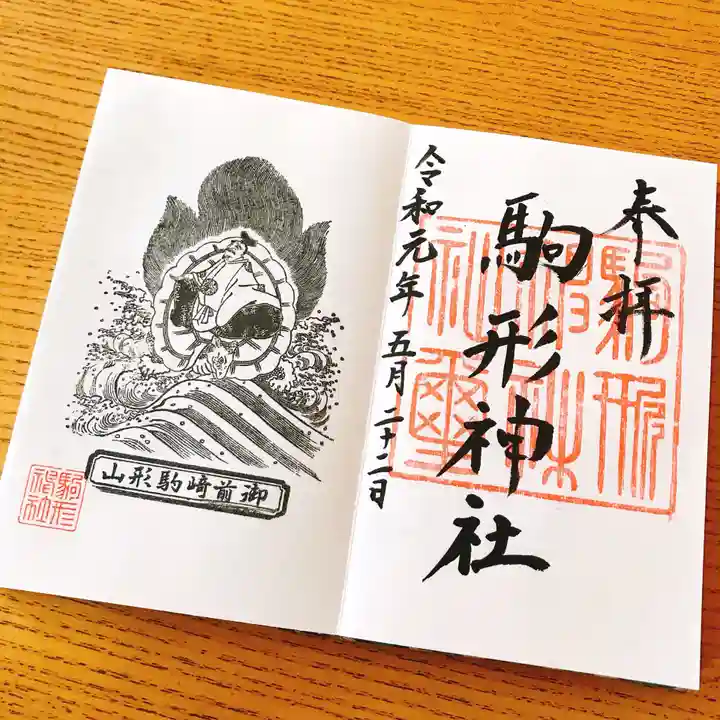 奉拝
駒形神社
令和元年五月二十二日
駒形神社璽
御前崎駒形山
駒形神社